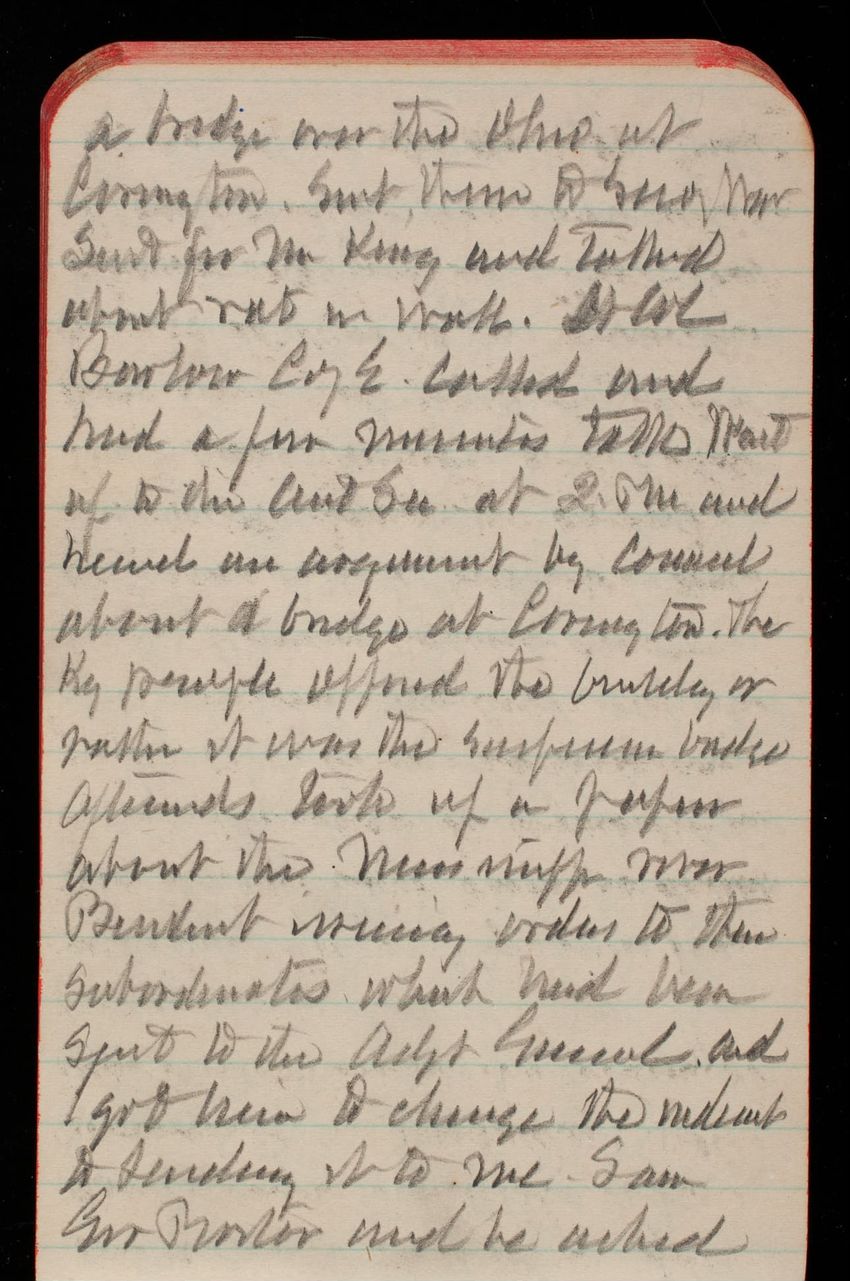 a bridge over the Ohio at
Covington. Sent them to Secy War
Sent for Mr King and talked
about rat in wall. Lt Col
Barlow C of E. called and
had a few minutes talk Went
up to the and Sec at 2. PM and
heard an argument by Council
about a bridge at Covington. The
Ky people opposed the building or
rather it was the suspension bridge
Afterwards took up a paper
about the Mississippi River
President issuing orders to their
subordinates which had been
sent to the Adjt General. and
I got him to change the
to sending it to me. Saw
Gov Proctor and he asked